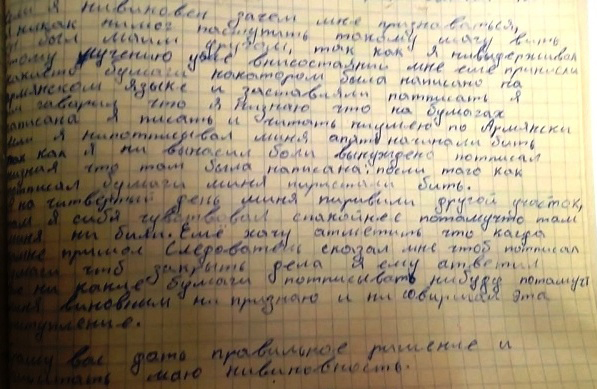 я нивиновен зачем мне признаваться,
никак нимог паступить такому шагу вить
был маим другом, так как я нивыдерживал
мучению уже внисостояни мне еще принисли
бумаги накотором была написано на
языке и заставили патписать я
гаварил что я низнаю что на бумагах
я писать и читать ниумею по Армянски
я нипотписывал миня апять начинали бить
как я ни вынасил боли вынуждено потписал
что там была написана. после того как
бумаги миня пиристали бить.
на читвертый день миня пиривили другой участок,
я сибя чувствовал спакойнее потамучто там
ни били. Ещё хачу атметить что кагда
пришол следователь сказал мне чтоб потписал
чтоб закрыть дела я ему атветил
ни какие бумаги потписывать нибуду потамучт
виновным ни признаю и ни совиршал эта
вас дать правильное ришение и
маю нивиновность.